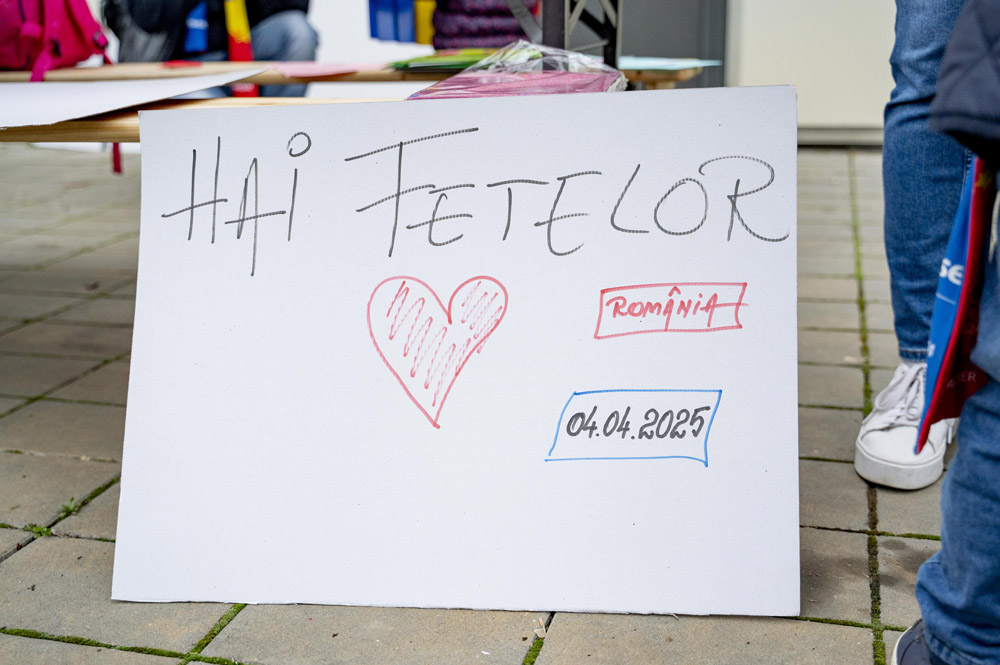 HAI FETELOR
ROMÂNIA
04.04.2025